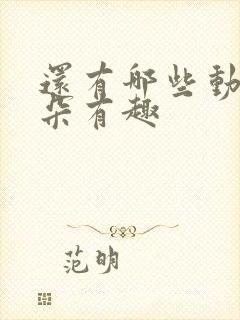 還有哪些動
朵有趣
范明